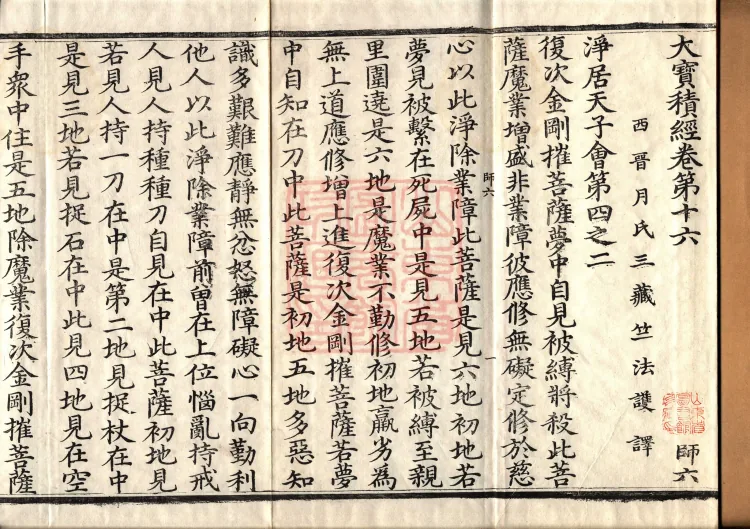 大寶積經卷第十六
師六
西晉月氏三藏竺法護譯
淨居天子會第四之二
復次金剛摧菩薩夢中自見被縛將殺此菩
薩魔業增盛非業障彼應修無礙定修於慈
師六
一
心以此淨除業障此菩薩是見六地初地若
夢見被繫在死屍中是見五地若被縛至親
里圍遶是六地是魔業不勤修初地羸劣為
無上道應修增上進復次金剛摧菩薩若夢
中自知在刀中此菩薩是初地五地多惡知
識多艱難應靜無忿怒無障礙心一向勤利
他人以此淨除業障前曾在上位惱亂持戒
人見人持種種刀自見在中此菩薩初地見
若見人持一刀在中是第二地見捉杖在中
是見三地若見捉石在中此見四地見在空
手眾中住是五地除魔業復次金剛摧菩薩